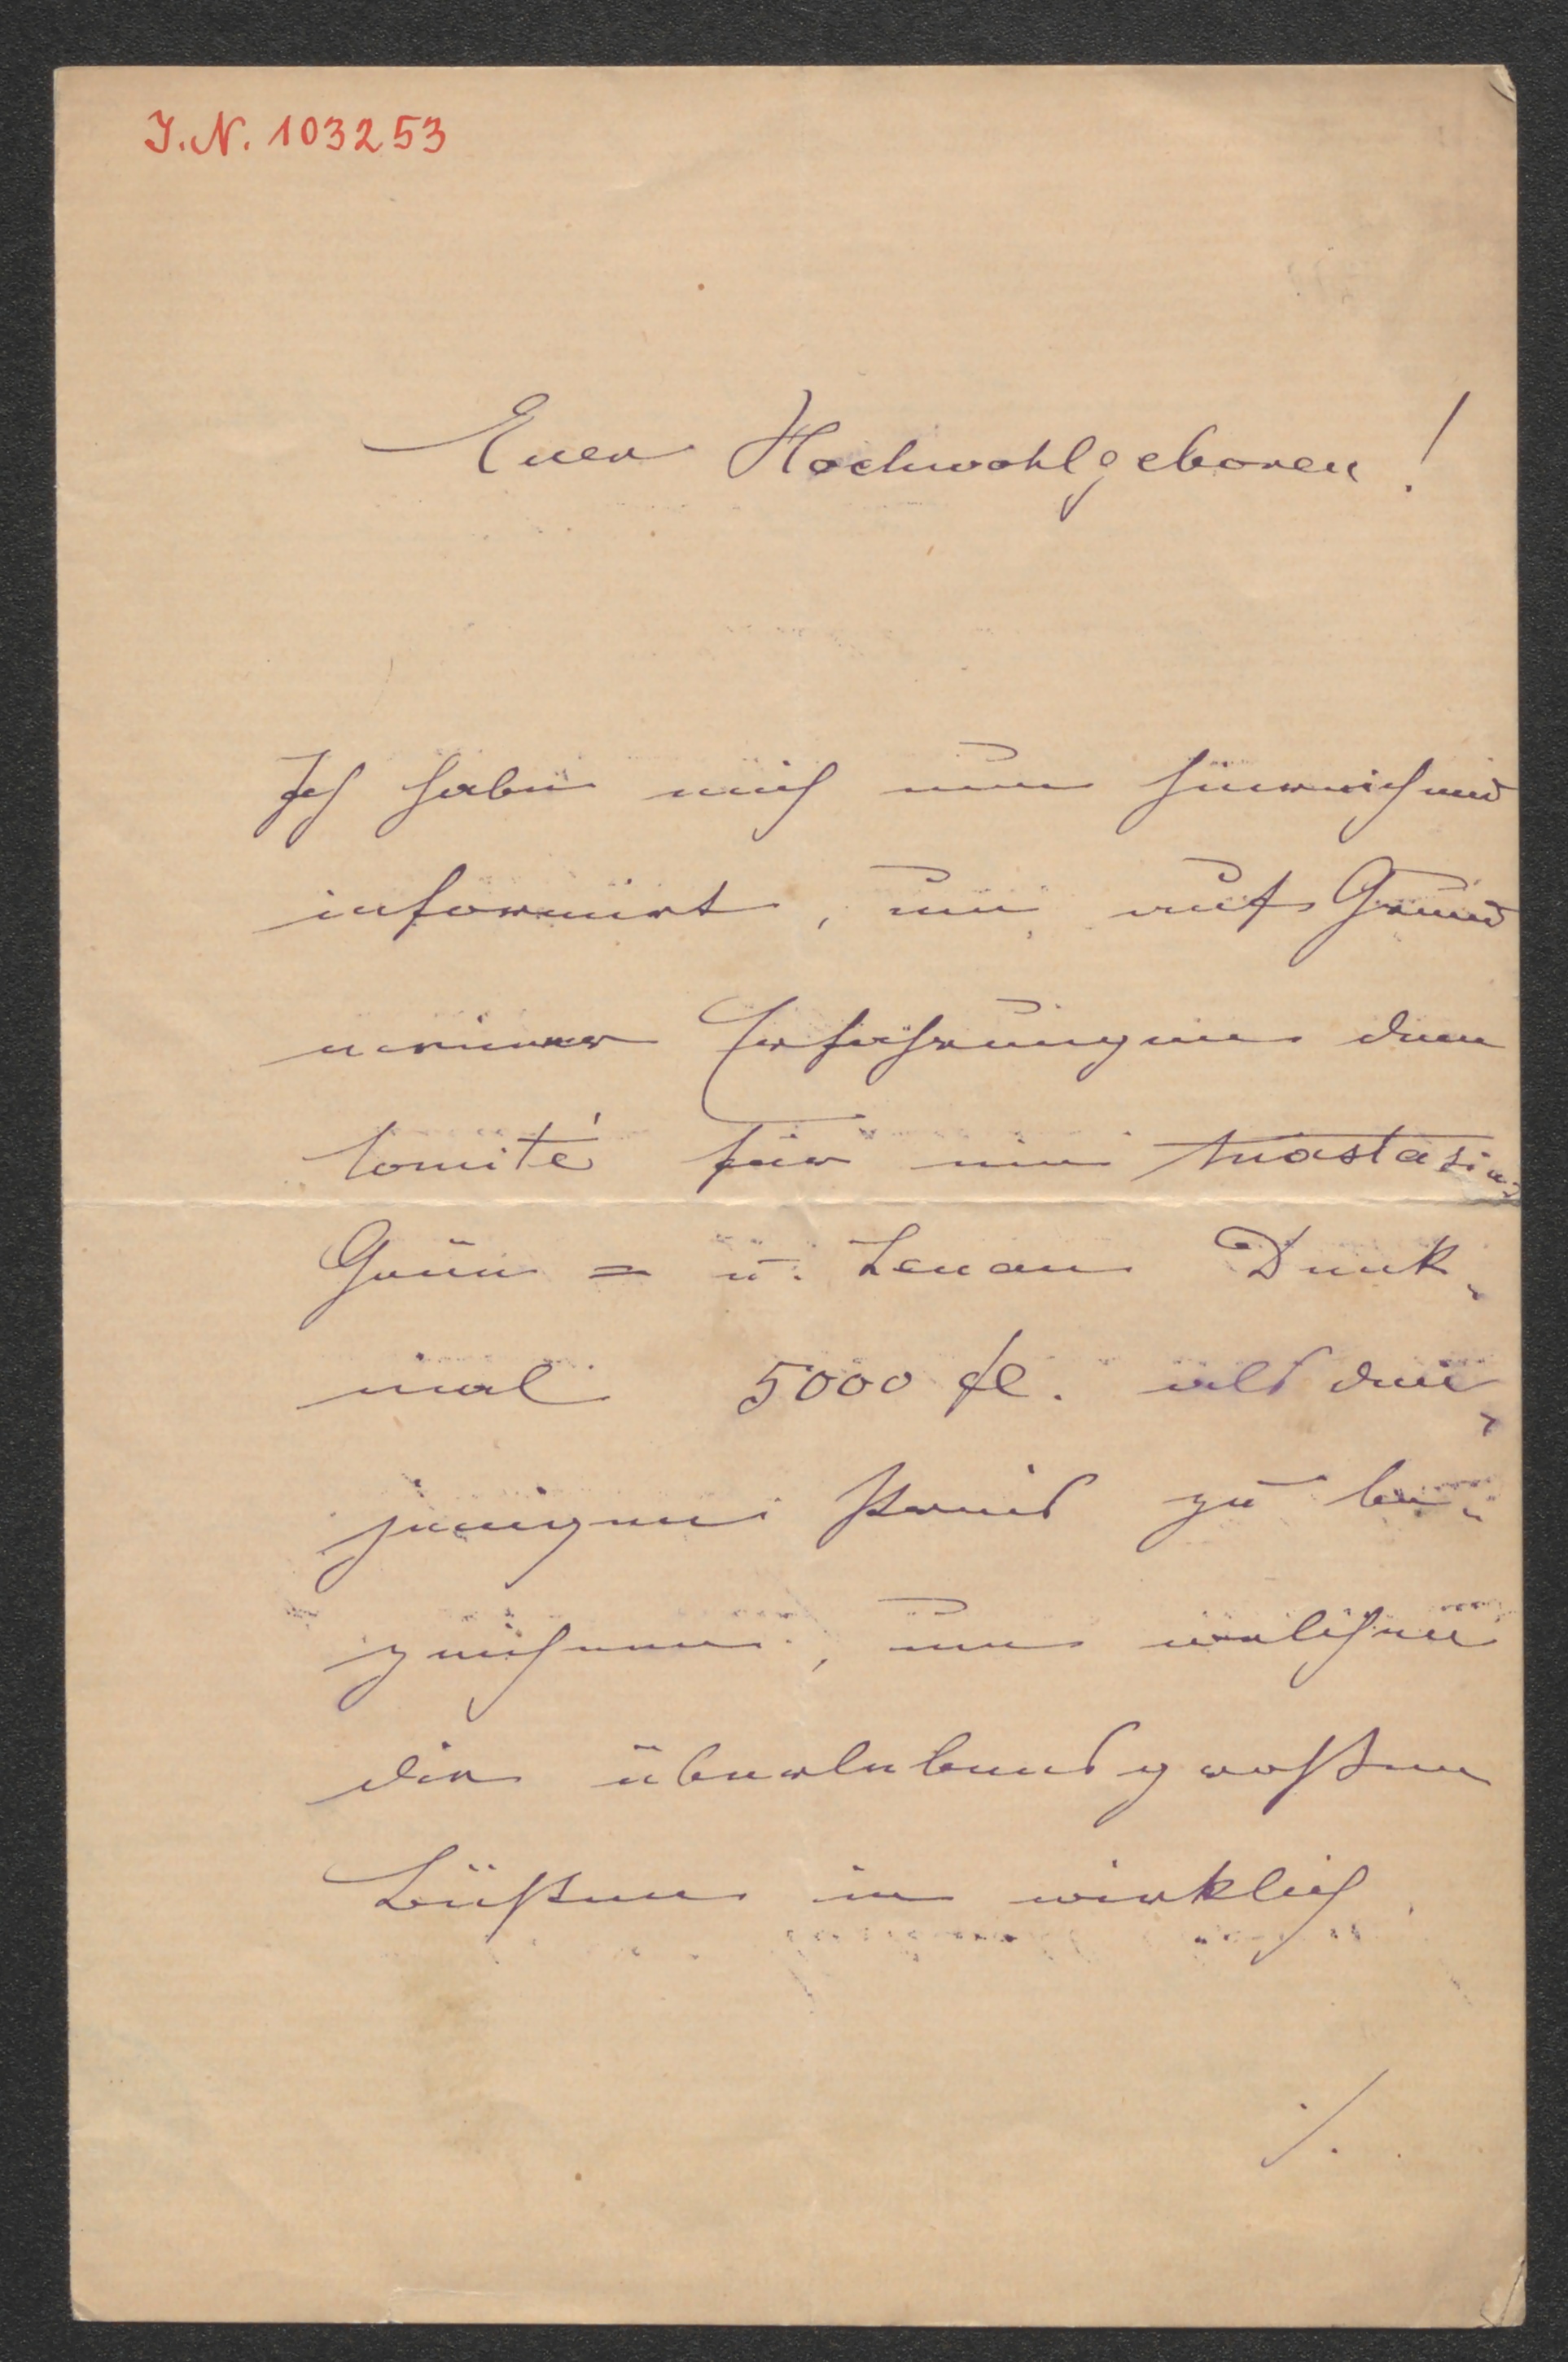 J.N. 103253
Euer Hochwohlgeboren!
Ich habe mich nun hinreichend
informirt, um auf Grund
meiner Erfahrungen dem
Comité für ein Anastasius
Grün = u. Lenau Denk-
mal 5000 fl. als den-
jenigen Preis zu be-
zeichnen, um welchen
die überlebensgroßen
Büsten in wirklich
./.